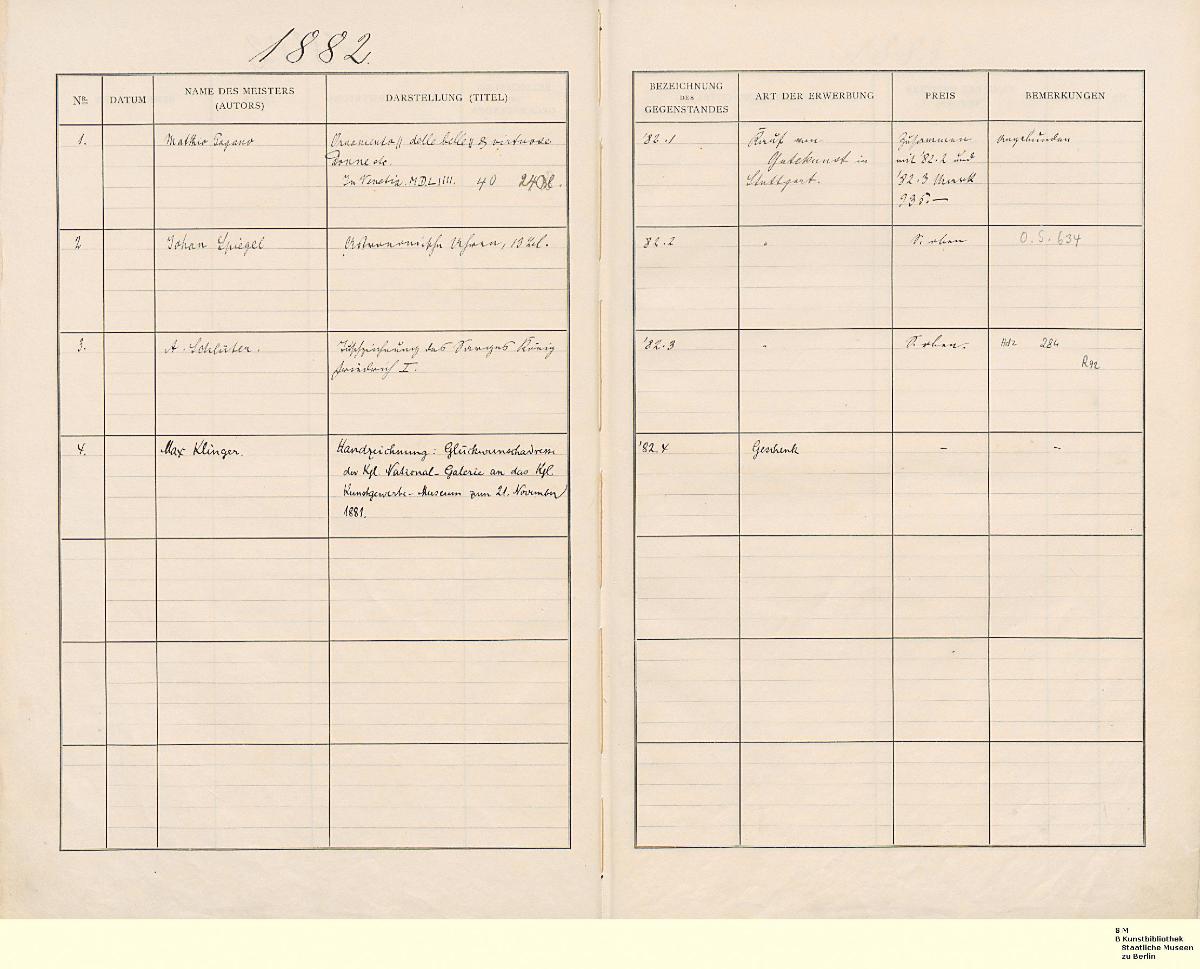 1882.
Nr. DATUM NAME DES MEISTERS (AUTORS) DARSTELLUNG (TITEL)
BEZEICHNUNG DES GEGENSTANDES ART DER ERWERBUNG PREIS BEMERKUNGEN
1. Matthio Pagano
Ornamento delle belle & virtuose
Donne etc.
In Venetia. M.D.LIIII. 40
'82.1
Kauf von
Gutekunst in
Stuttgart.
Zusammen
mit '82.2 und
'82.3 Mark
935.—
Angebunden
2 Johan Spiegel
Astronomische Uhren, 13 Bl.
82.2 " S. oben O.S. 634
3. A. Schlüter.
Tuschzeichnung des Sarges König
Friedrich I.
'82.3 " S. oben. Hdz 284
4. Max Klinger.
Handzeichnung: Glückwunschadresse
der Kgl. National-Galerie an das Kgl.
Kunstgewerbe-Museum zum 21. November
1881.
'82.4 Geschenk – –
S M
B Kunstbibliothek
Staatliche Museen
zu Berlin